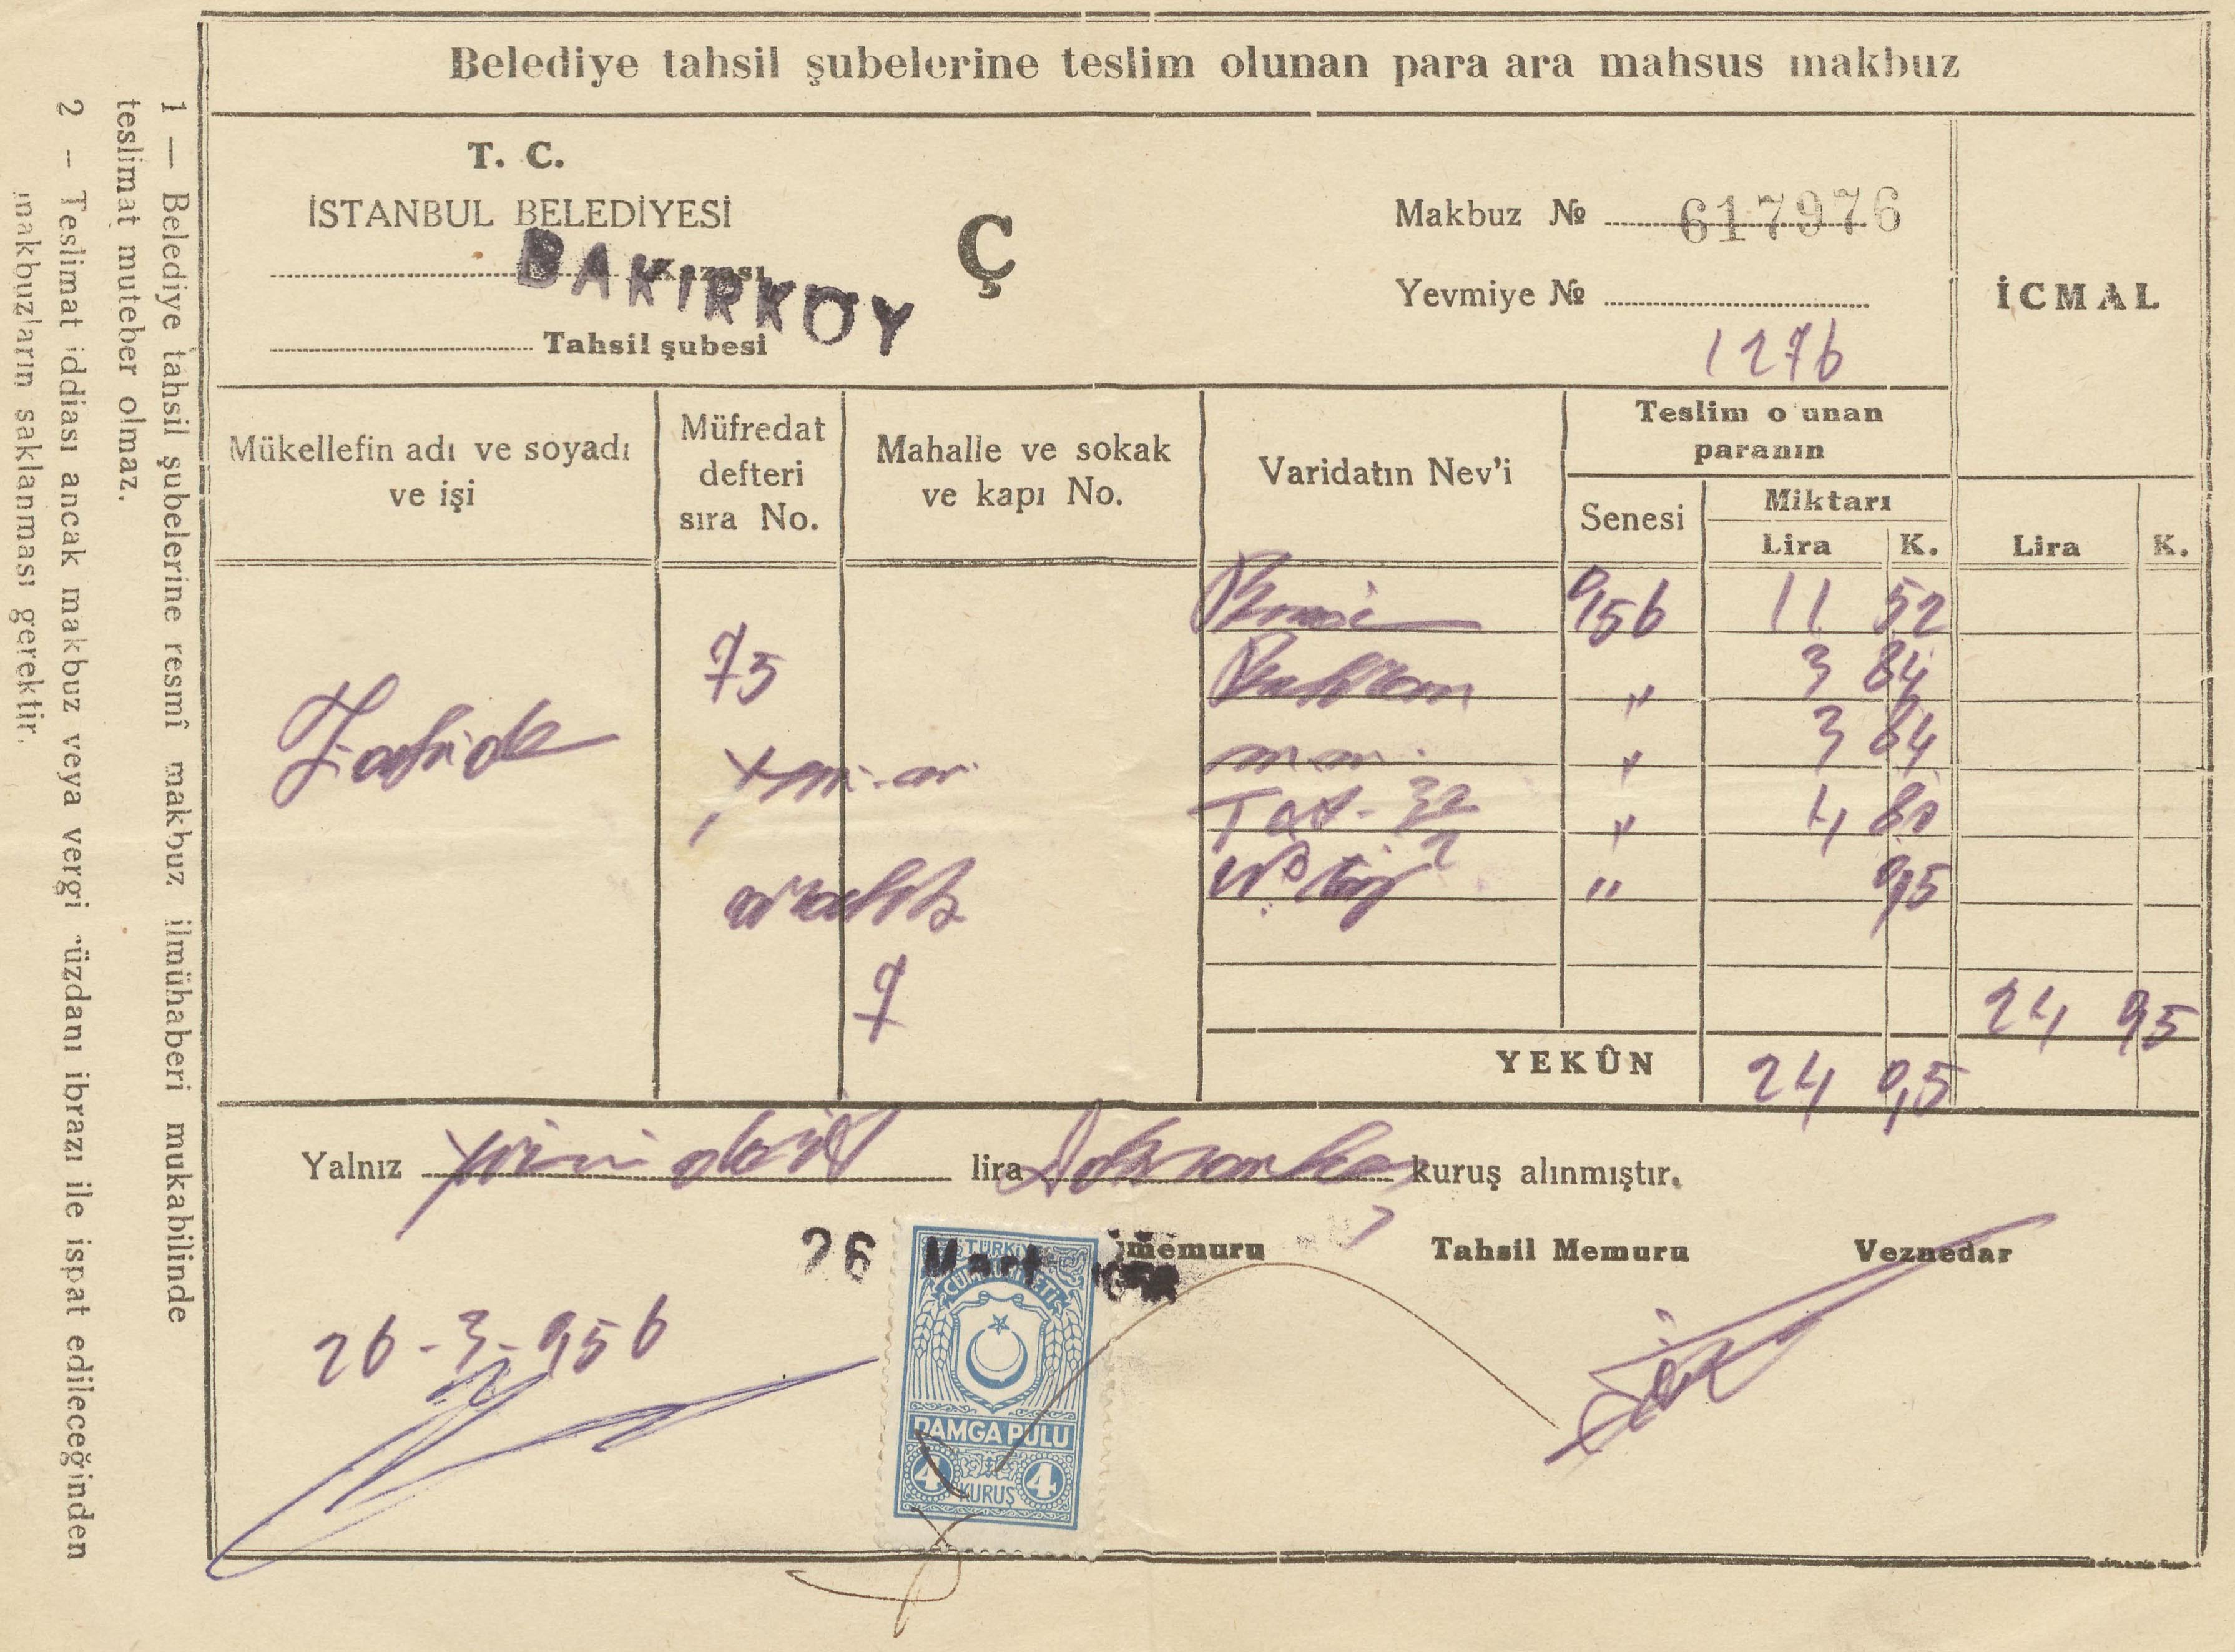 Belediye tahsil şubelerine teslim olunan para ara mahsus makbuz
T. C.
İSTANBUL BELEDİYESİ
Kazası
BAKIRKÖY
Tahsil şubesi
Ç
Makbuz № 617976
Yevmiye №
1276
İCMAL
Mükellefin adı ve soyadı
ve işi
Müfredat
defteri
sıra No.
Mahalle ve sokak
ve kapı No.
Varidatın Nev'i
Teslim o unan
paranın
Senesi
Miktarı
Lira K.
Lira K.
956 11 52
75
3 84
Zahide
3 84
4 80
" 95
aralık
9
24 95
YEKÛN 24 95
Yalnız lira kuruş alınmıştır.
26 Mart
memuru
Tahsil Memuru
Veznedar
26-3-956
TÜRKİYE
CUMHURİYETİ
DAMGA PULU
4 4
KURUŞ
1 — Belediye tahsil şubelerine resmî makbuz ilmühaberi mukabilinde
teslimat muteber olmaz.
2 — Teslimat iddiası ancak makbuz veya vergi üzdanı ibrazı ile ispat edileceğinden
makbuzların saklanması gerektir.